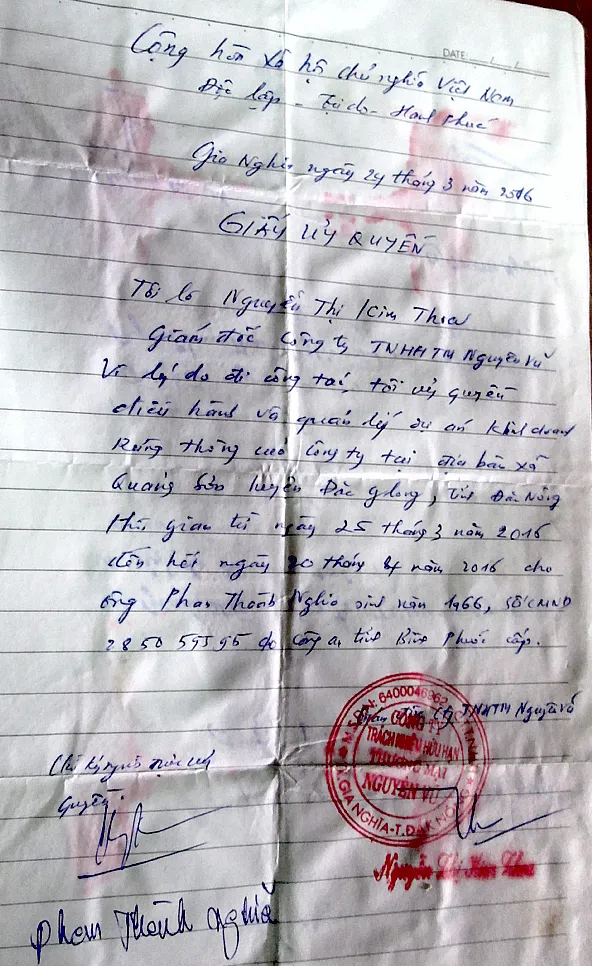 DATE:
Cộng hòa xã hội chủ nghĩa Việt Nam
Độc lập - Tự do - Hạnh phúc
Gia Nghĩa ngày 24 tháng 3 năm 2016
GIẤY ỦY QUYỀN
Tôi là Nguyễn Thị Kim Thoa
Giám đốc Công ty TNHH TM Nguyên Vũ
Vì lý do đi công tác, tôi ủy quyền
điều hành và quản lý dự án Kinh doanh
Rừng thông của công ty tại địa bàn xã
Quảng Sơn huyện Đăc Glong, tỉnh Đăk Nông
Thời gian từ ngày 25 tháng 3 năm 2016
đến hết ngày 20 tháng 4 năm 2016 cho
ông Phạm Thành Nghĩa sinh năm 1966, số CMND
285059595 do công an tỉnh Bình Phước cấp.
Giám đốc Cty TNHH TM Nguyên Vũ
M.S.D.N: 6400046962
CÔNG TY
TRÁCH NHIỆM HỮU HẠN
THƯƠNG MẠI
NGUYÊN VŨ
GIA NGHĨA-T.ĐĂK NÔNG
Chữ ký người được ủy
quyền:
Nguyễn Thị Kim Thoa
Phạm Thành Nghĩa